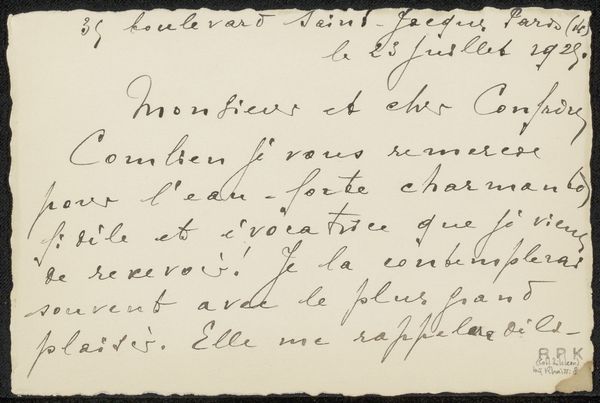 35 boulevard Saint-Jacques Paris (14e)
le 23 juillet 1925.
Monsieur et cher Confrère
Combien je vous remercie
pour l'eau-forte charmante,
fidèle et évocatrice que je viens
de recevoir! Je la contemplerai
souvent avec le plus grand
plaisir. Elle me rappelera dils-
R.P.K